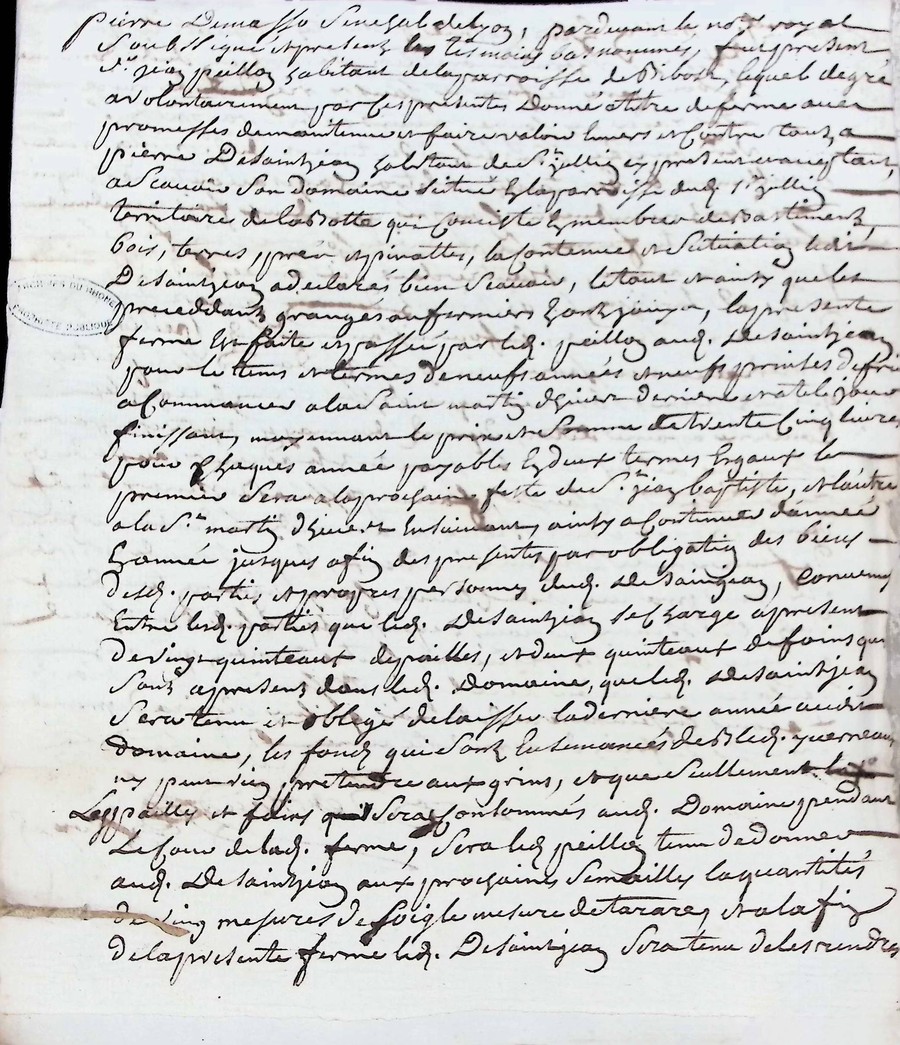 pierre Demasso Senechal de Lyon, pardevant le nore royal
Soubsigné et present les tesmoins bas nommes, fut present
Sr jean peillon habitant de la parroisse de Ribost, lequel de gré
a volontairement par ces presentes donné a titre de ferme avec
promesses de maintenue et faire valoir Envers et Contre touts a
pierre Desaintjean habitant de St jullien present et acceptant,
a Scavoir Son domaine Scitué En la parroisse dud. St jullien
territoire de la Botte qui Conciste En membres de Bastiments,
bois, terres, prés et pinattes, la Contenue et Scituation ledit
Desaintjean a declarés bien Scavoir, le tout et ainsy que les
preceddants grangés ou fermiers En ont jouys, la presente
ferme Est faite et passée par led. peillon aud. Desaintjean
pour le tems et termes de neufs années et neufs prinses de fruits
a Commancer a la Saint martin d'hivert derniere et a tel jour
finissant, moyennant le prix et Somme de trente Cinq livres
pour Chaques année payables En deux termes Esgaux le
premier Sera a la prochaine feste de St jean baptiste, et l'autre
a la St martin d'hivert Ensuivant, ainsy a Continuer d'année
En année jusques a fin des presentes par obligation des biens
desd. parties et propres personnes dud. Desaintjean, Convenu
Entre lesd. parties que led. Desaintjean se Charge a present
de vingt quinteaux de pailles, et deux quinteaux de foins qui
Sont a present dans led. Domaine, que led. Desaintjean
Sera tenu et obligé de laisser la derniere année audit
domaine, les fonds qui Sont Ensemancés de Bled.
ny peut rien pretendre aux grins, et que Seullement
Les pailles et foins Seront Consommés aud. Domaine pendant
Le Cour de lad. ferme, Sera led peillon tenu de donner
aud. Desaintjean aux prochaines Semailles la quantités
de cinq mesures de Soigle mesure de tarare, et a la fin
de la presente ferme led. Desaintjean Sera tenu de les rendres
ARCHIVES DU RHONE
PROPRIETE PUBLIQUE